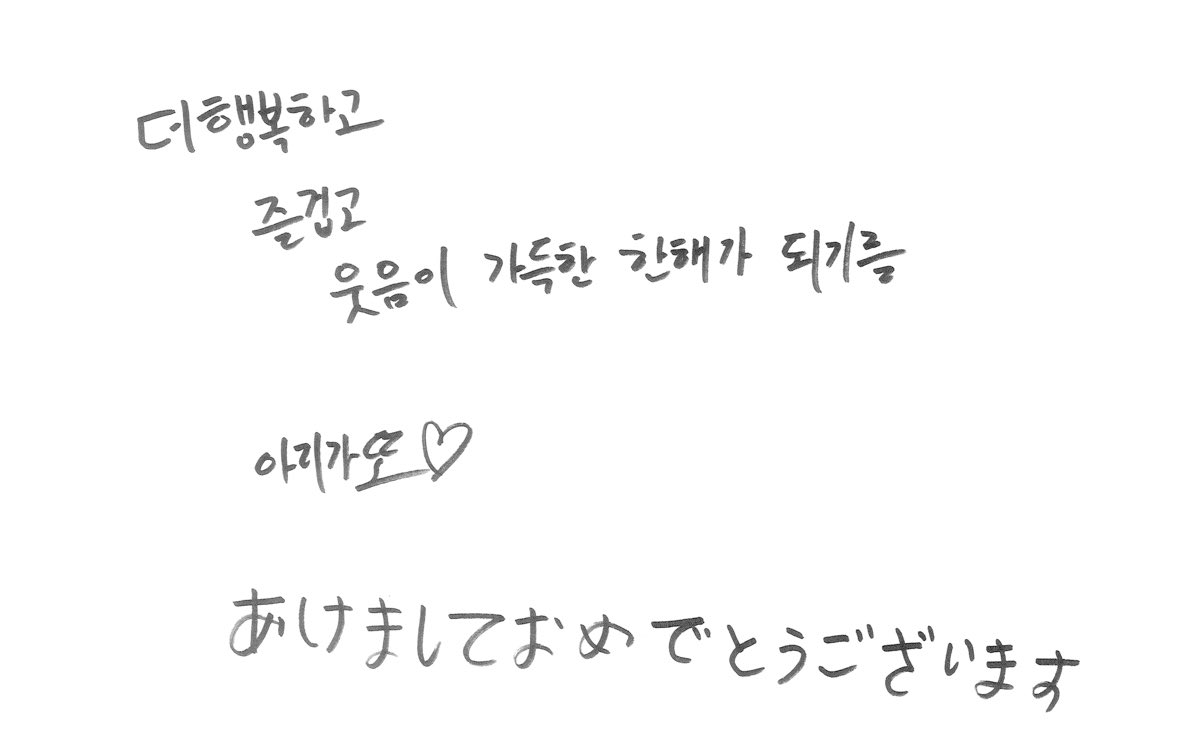 더행복하고
즐겁고
웃음이 가득한 한해가 되기를
아리가또♡
あけましておめでとうございます